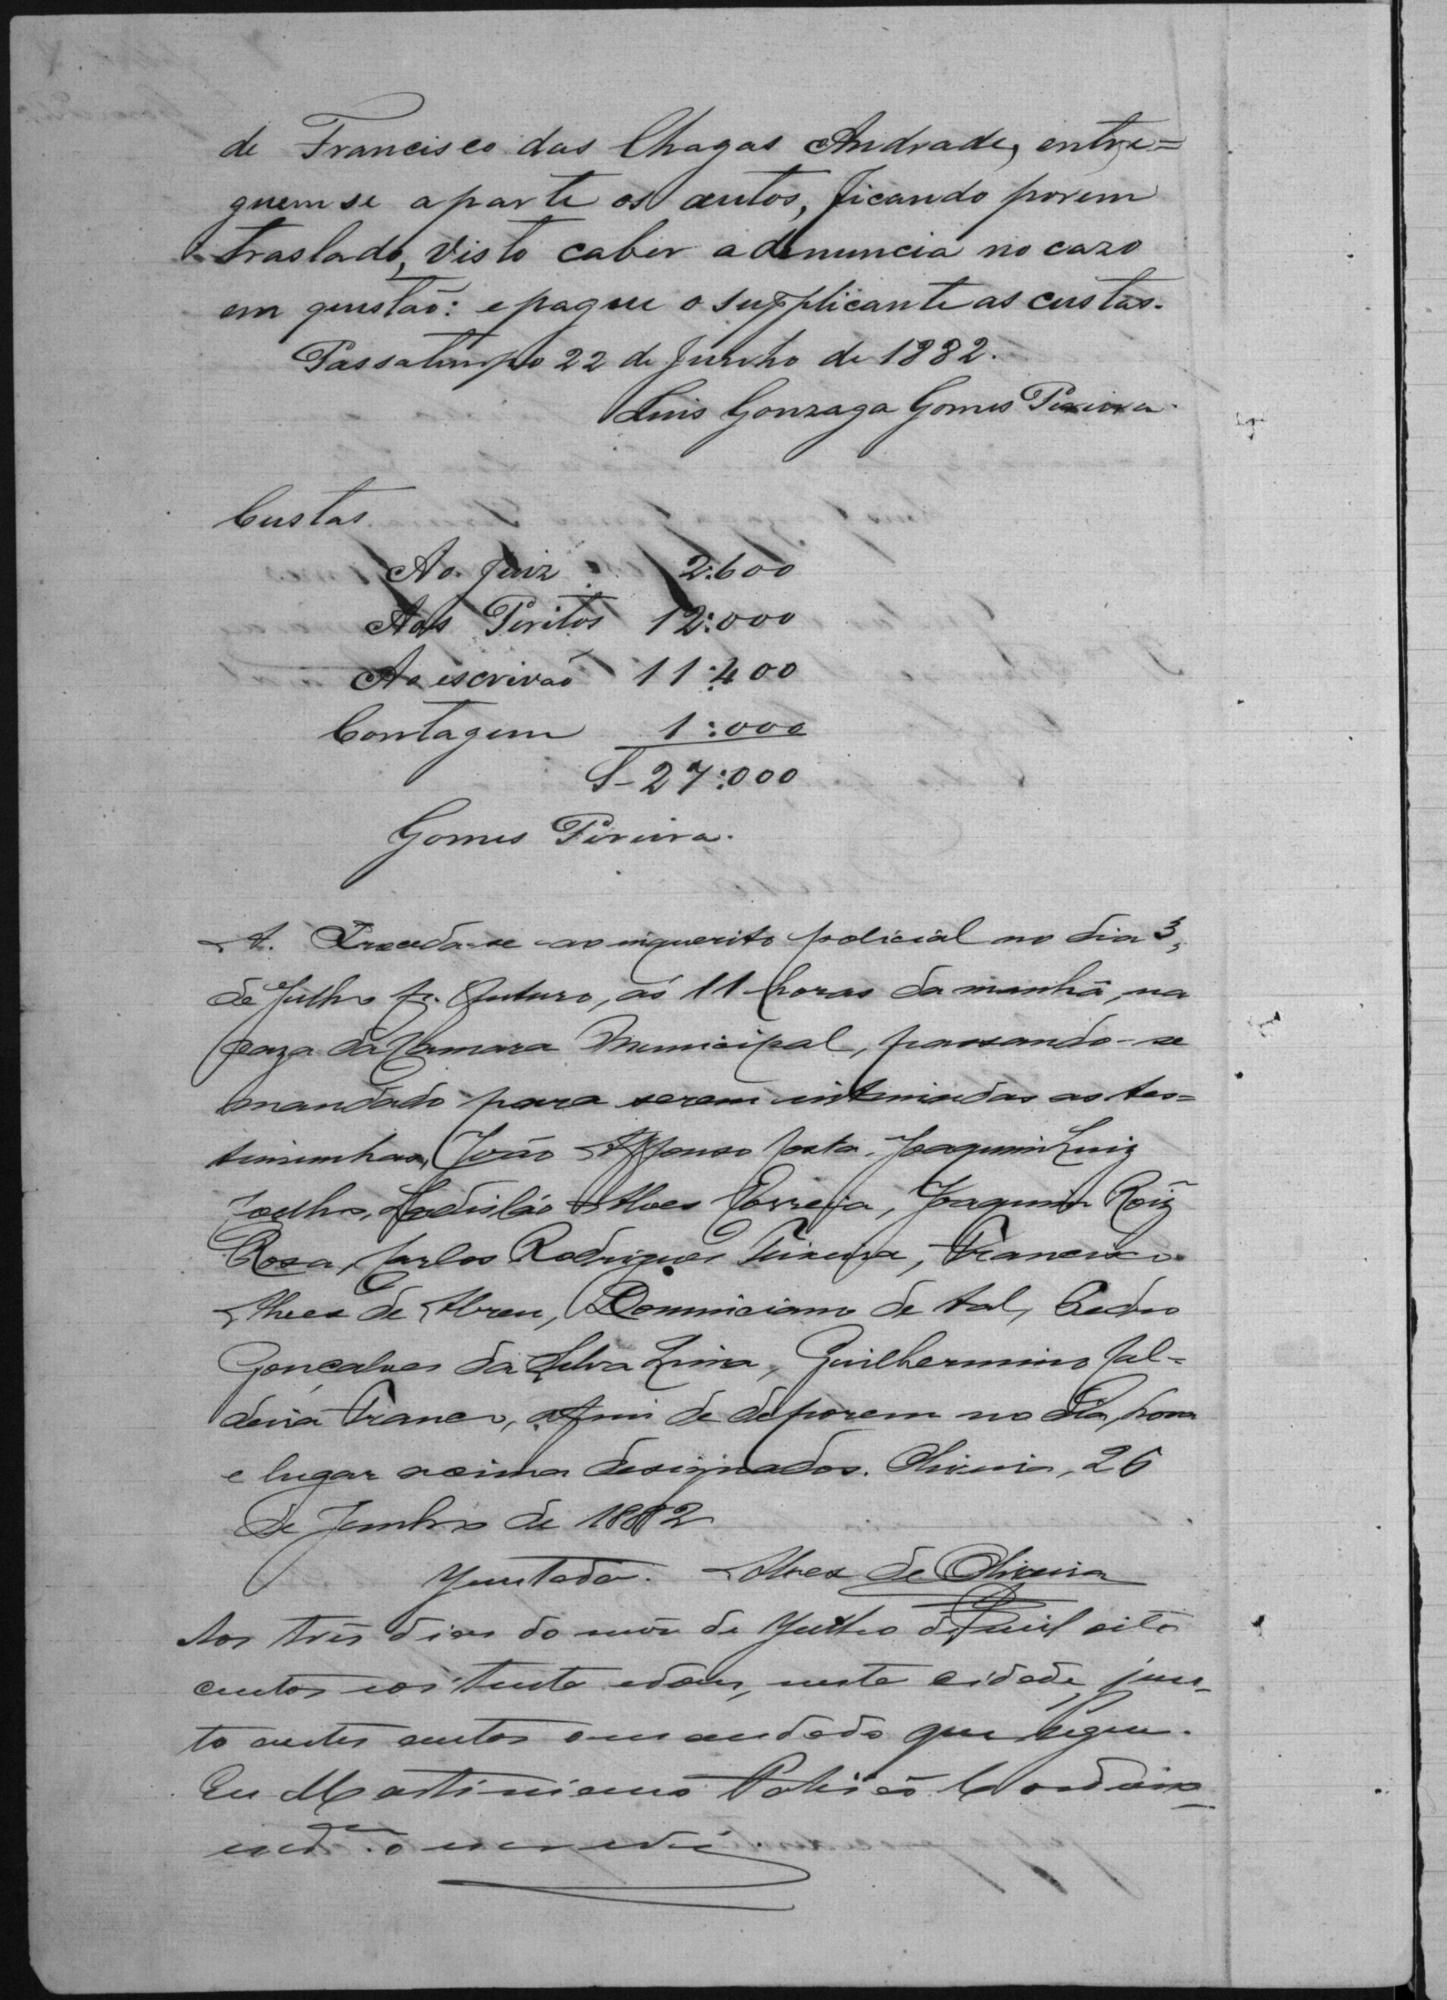 de Francisco das Chagas Andrade, entre=
guemse a parte os autos, ficando porem
traslado, visto caber a denuncia no cazo
em questão: e pague o supplicante as custas.
Passatempo 22 de Junho de 1882.
Luis Gonzaga Gomes Pereira
Custas
Ao Juiz 2:600
Aos Peritos 12:000
Ao escrivão 11:400
Contagem 1:000
S- 27:000
Gomes Pereira.
A. Proceda-se ao inquerito policial no dia 3,
de Julho p. futuro, ás 11 horas da manhã, na
caza da Camara Municipal, passando-se
mandado para serem intimadas as tes=
timunhas, João Affonso Costa, Joaquim Luiz
Coelho, Ladislão Alves Correia, Joaquim Roiz
Rosa, Carlos Rodrigues Teixeira, Francisco
Alves de Abreu, Dominiciano de tal, Pedro
Gonçalves da Silva Lima, Guilhermino Cal-
deira Franco, afim de deporem no dia, hora
e lugar acima designados. Oliveira, 26
de Junho de 1882
Alves de Oliveira
Juntada.
Aos três dias do mês de Julho de mil oito
centos e oitenta e dous, nesta cidade, jun-
to a estes autos o mandado que segue.
Eu Martiniano
o escrevi